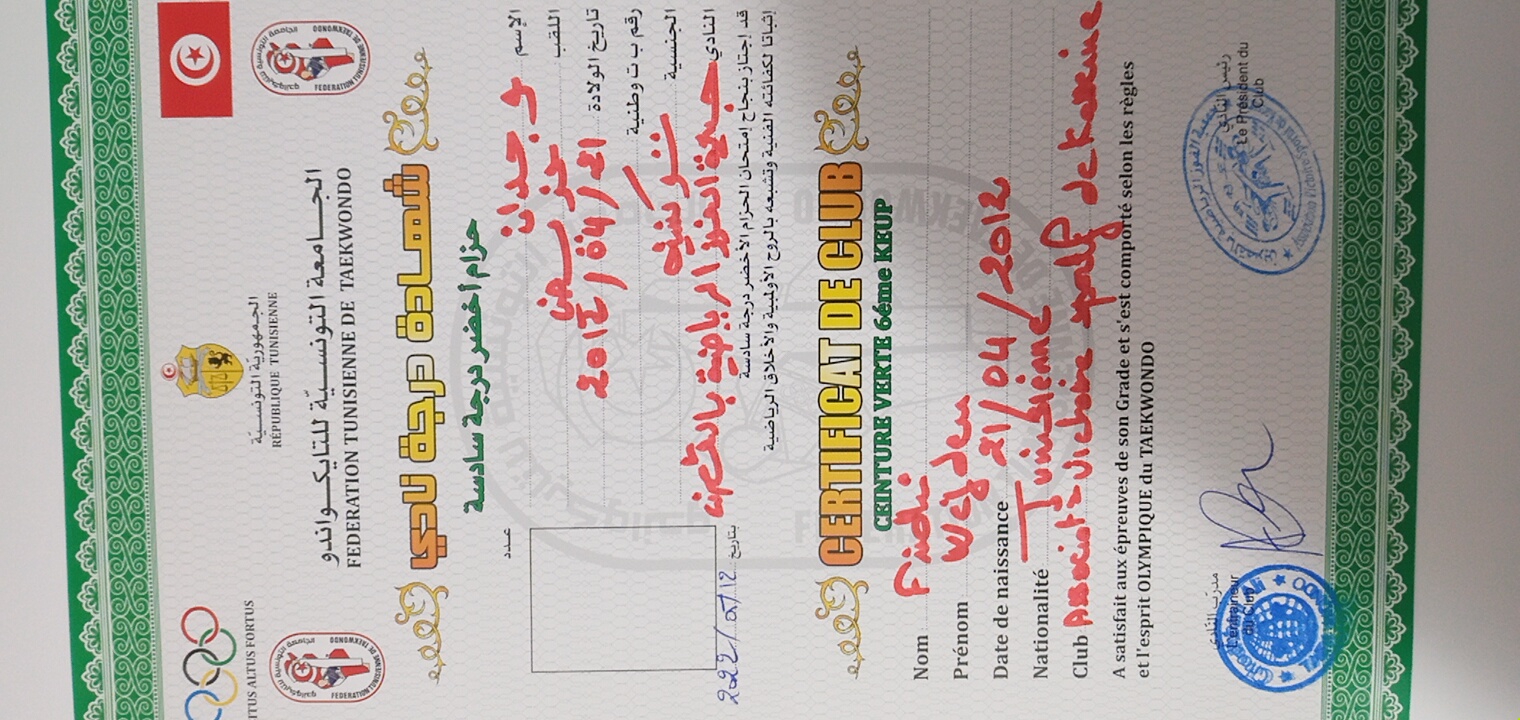 ITUS ALTUS FORTUS
الجمهورية التونسية
RÉPUBLIQUE TUNISIENNE
الجامعة التونسية للتايكواندو
FEDERATION TUNISIENNE DE TAEKWONDO
شهادة درجة نادي
حزام أخضر درجة سادسة
عدد
الإسم وجدان
اللقب
تاريخ الولادة 21/04/2012
رقم ب ت وطنية
الجنسية تونسية
النادي جمعية الفوز الرياضية
قد إجتاز بنجاح إمتحان الحزام الأخضر درجة سادسة
إثباتا لكفائته الفنية وتشبعه بالروح الأولمبية والأخلاق الرياضية
بتاريخ 2022/05/12
CERTIFICAT DE CLUB
CEINTURE VERTE 6éme KEUP
Nom
Prénom Wijden
Date de naissance 21/04/2012
Nationalité Tunisienne
Club
A satisfait aux épreuves de son Grade et s'est comporté selon les règles
et l'esprit OLYMPIQUE du TAEKWONDO
مدرب النادي
L'entraineur
du Club
رئيس النادي
Le Président du
Club